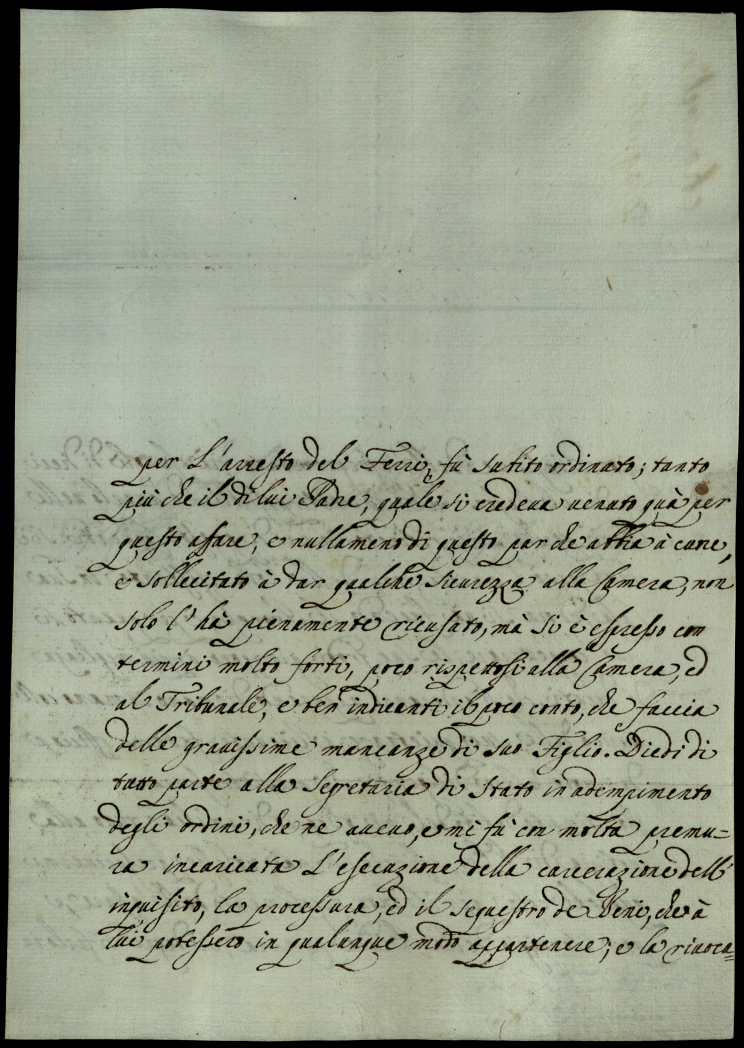 per L'arresto del Ferri, fù subito ordinato; tanto
più che il di lui Padre, quale si credeva venuto quà per
questo affare, e nullameno di questo par che abbia à cure,
e sollecitato à dar qualche sicurezza alla Camera, non
solo l'hà pienamente ricusato, mà si è espresso con
termini molto forti, poco rispettosi alla Camera, ed
al Tribunale, e ben indicanti il poco conto, che faccia
delle gravissime mancanze di suo Figlio. Diedi di
tutto parte alla Segretaria di Stato in adempimento
degli ordini, che ne avevo, e mi fù con molta premu=
ra incaricata L'esecuzione della carcerazione dell'
inquisito, la processura, ed il sequestro de Beni, che à
lui potessero in qualunque modo appartenere; e la rivoca=